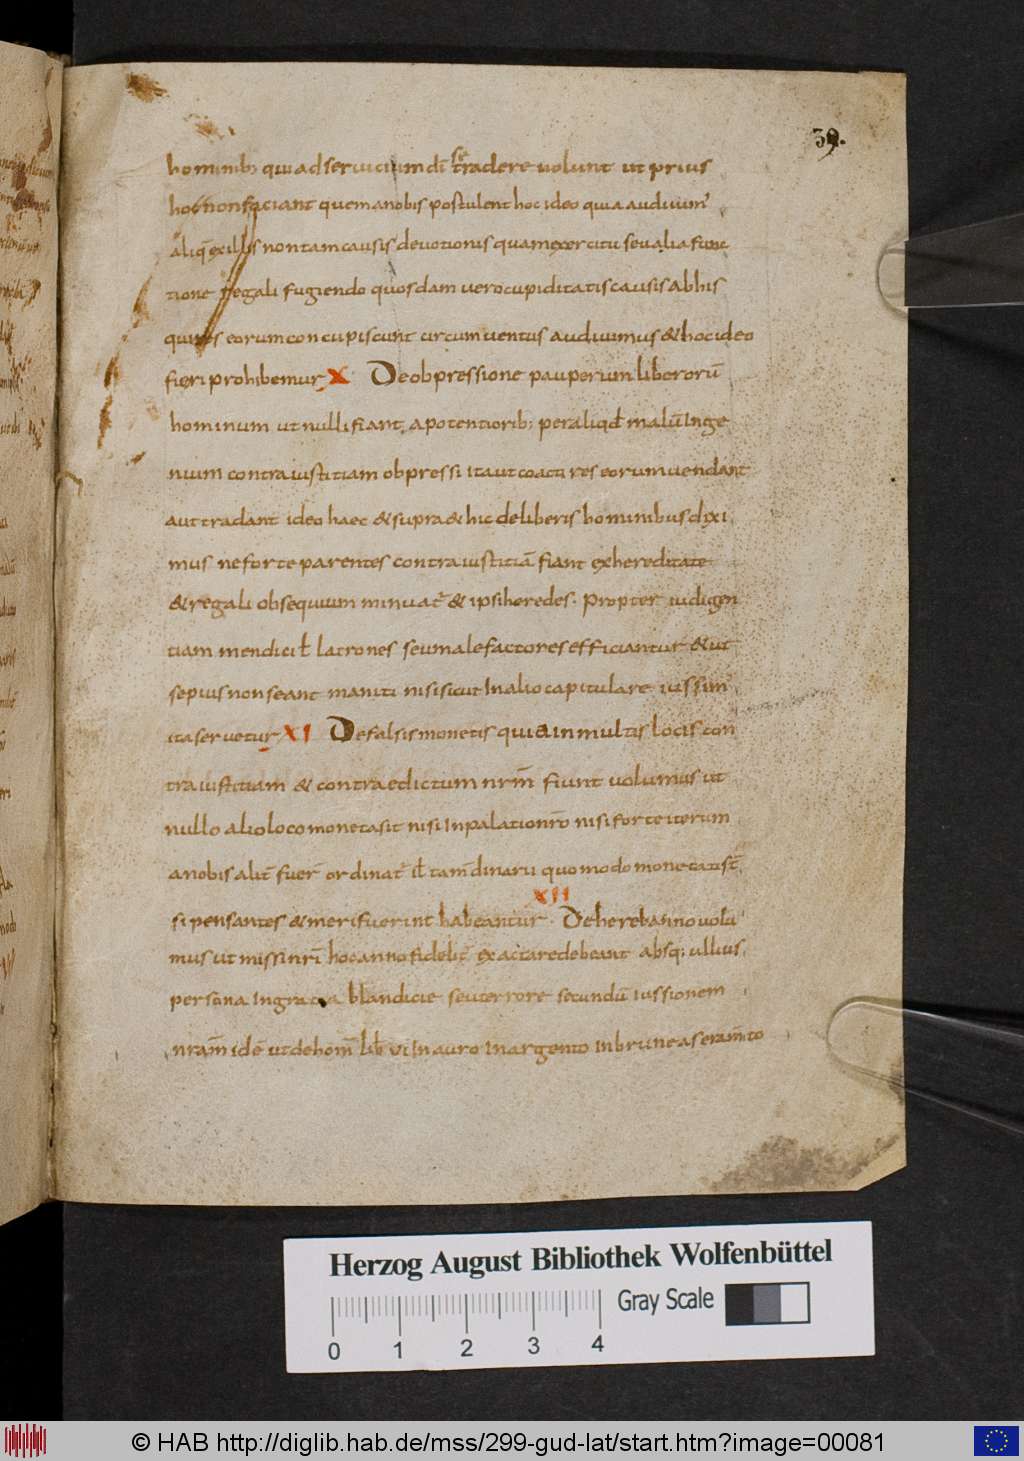 39.
hominib; qui ad seruicium dī se tradere uolunt ut prius
hoc non faciant quem a nobis postulent hoc ideo quia audiuim'
aliq; ex illis non tam causis deuotionis quam exercitu seu alia func
tione regali fugiendo quosdam uero cupiditatis causis ab his
qui res eorum concupiscunt circumuentus audiuimus & hoc ideo
fieri prohibemur X De obpressione pauperum liberorū
hominum ut nulli fiant a potentiorib; per aliqd malū inge
nium contra iustitiam obpressi ita ut coacti res eorum uendant
aut tradant ideo haec & supra & hic de liberis hominibus dixi
mus ne forte parentes contra iustitiā fiant exhereditate
& regali obsequium minuat' & ipsi heredes. Propter indigen
tiam mendici ł latrones seu malefactores efficiantur & ut
sepius non seant maniti nisi sicut in alio capitulare iussim'
ita seruetur XI De falsis monetis quia in multis locis con
tra iustitiam & contra edictum nrm̄ fiunt uolumus ut
nullo alio loco moneta sit nisi in palatio nr̄o nisi forte iterum
a nobis alit̄ fuer̄ ordinat' il tam̄ dinarii quomodo monetatist̄
XII
si pensantes & meri fuerint habeantur. De herebanno uolu
mus ut missi nr̄i hoc anno fidelit̄ exactare debeant absq; ullius
persona in gratia blandicie seu terrore secundū iussionem
nram̄ idē ut de hom̄ hab̄ ui in auro in argento in brunea seram̄to
Herzog August Bibliothek Wolfenbüttel
Gray Scale
0 1 2 3 4
© HAB http://diglib.hab.de/mss/299-gud-lat/start.htm?image=00081